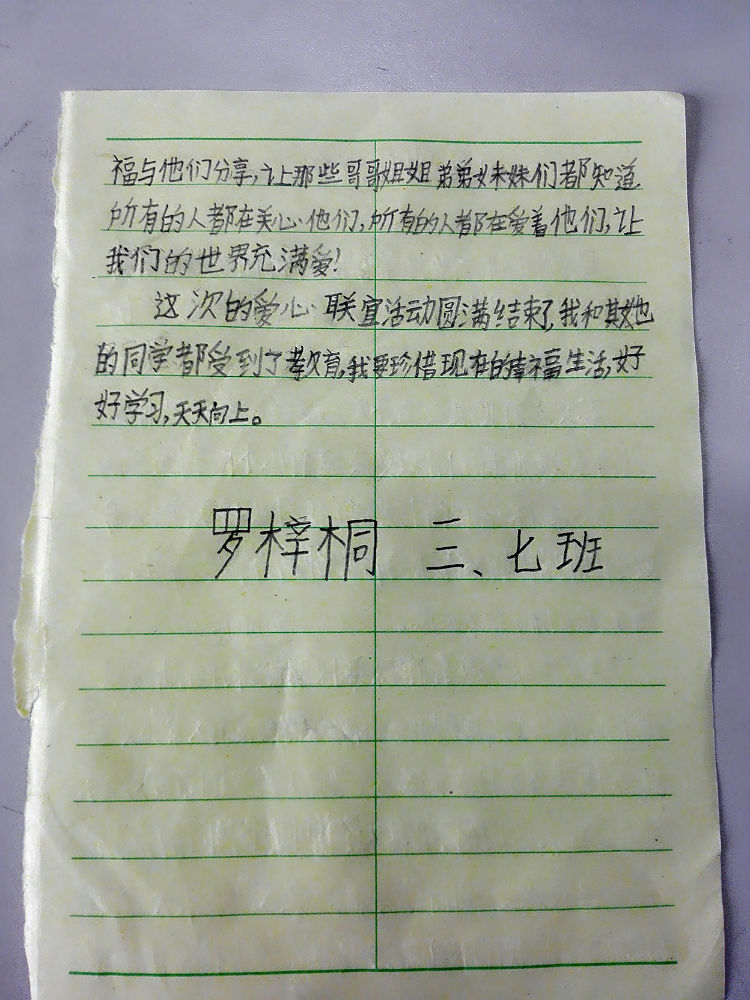 福与他们分享,让那些哥哥姐姐弟弟妹妹们都知道
所有的人都在关心他们,所有的人都在爱着他们,让
我们的世界充满爱!
这次的爱心联宜活动圆满结束了,我和其她
的同学都受到了教育,我要珍借现在的幸福生活,好
好学习,天天向上。
罗梓桐 三、七班